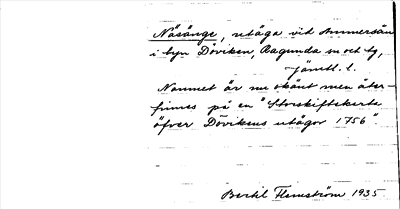 Näsänge, utäga vid Ammersån
i byn Döviken, Ragunda sn och tg,
Jämtl. l.
Namnet är nu okänt men åter-
finnes på en "Storskifteskarta
öfver Dövikens utägor 1756".
Bertil Flemström 1935.